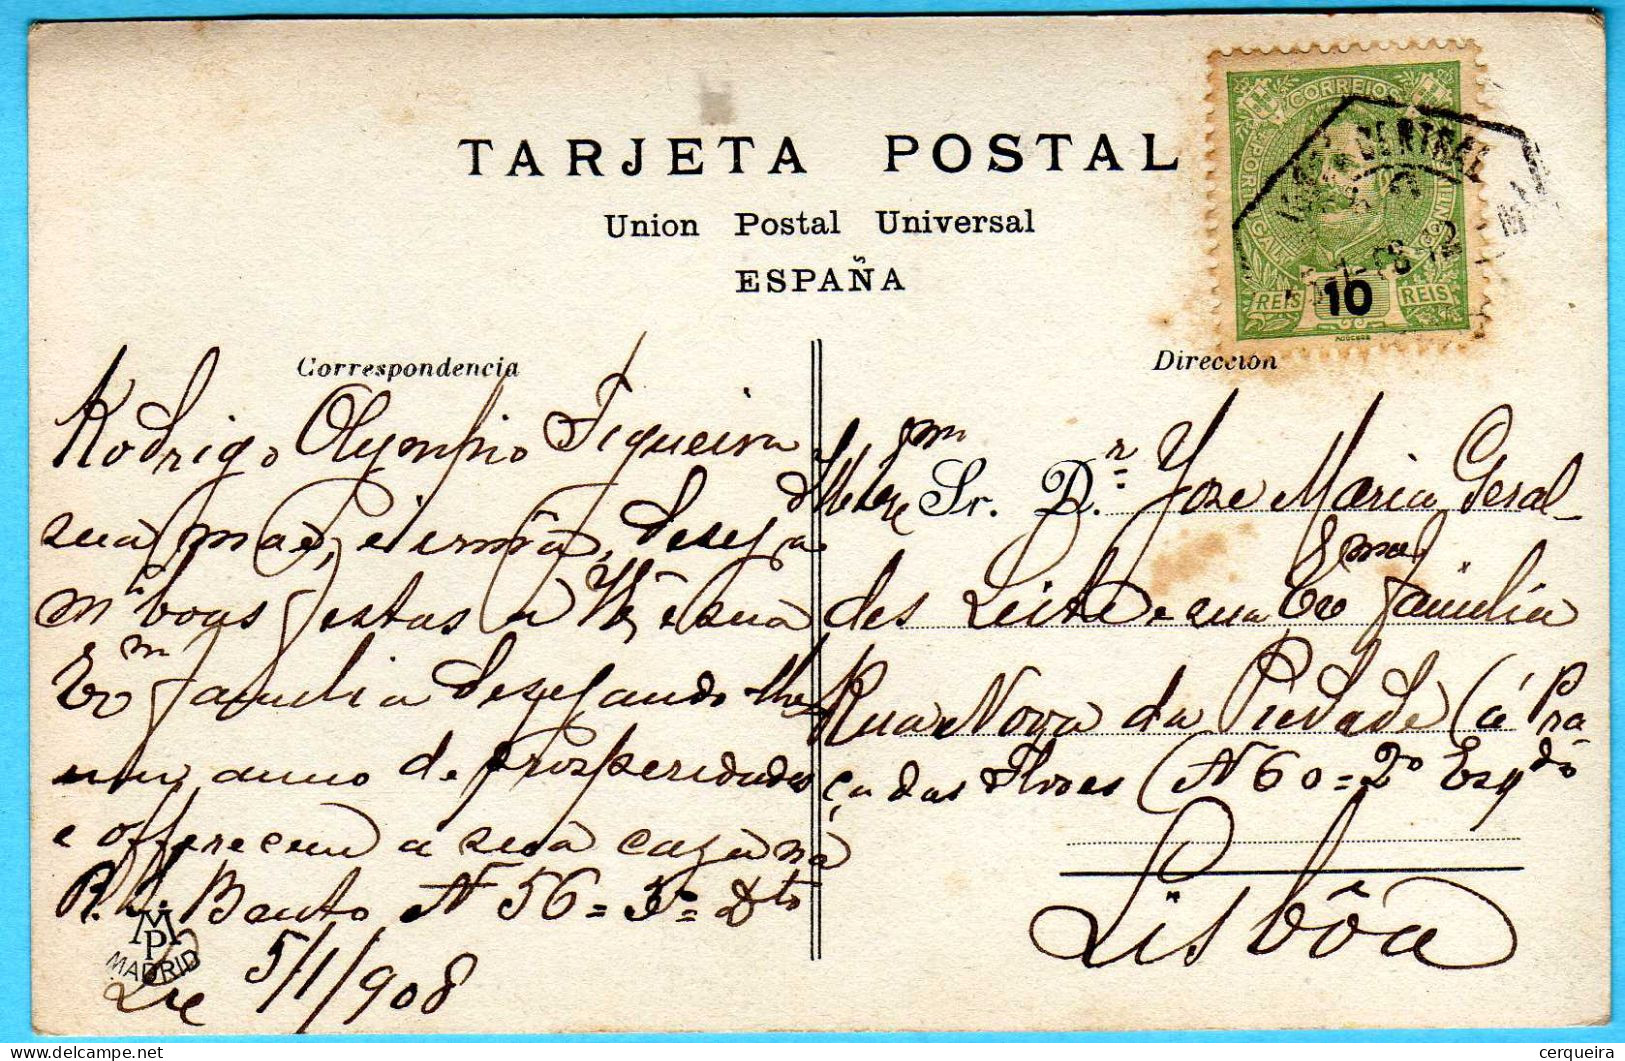 TARJETA POSTAL
Union Postal Universal
ESPAÑA
CORREIOS
PORTUGAL
CENTRAL
REIS 10 REIS
Correspondencia
Rodrigo Olympio Figueira
sua mãe, e irmã, deseja
mto boas festas a V. Exa e sua
Exma familia desejando-lhes
um anno de prosperidades
e offerecem a sua caza na
R. S. Bento Nº 56 = 3º Dto
Lxa 5/1/908
MP
MADRID
Direccion
Illmo Exmo Sr. Dr. Jose Maria Geral-
des Leite e sua Exma familia
Rua Nova da Piedade (á Pra-
ça das Flores ( Nº 60 = 2º Esqdo
Lisbôa
cerqueira